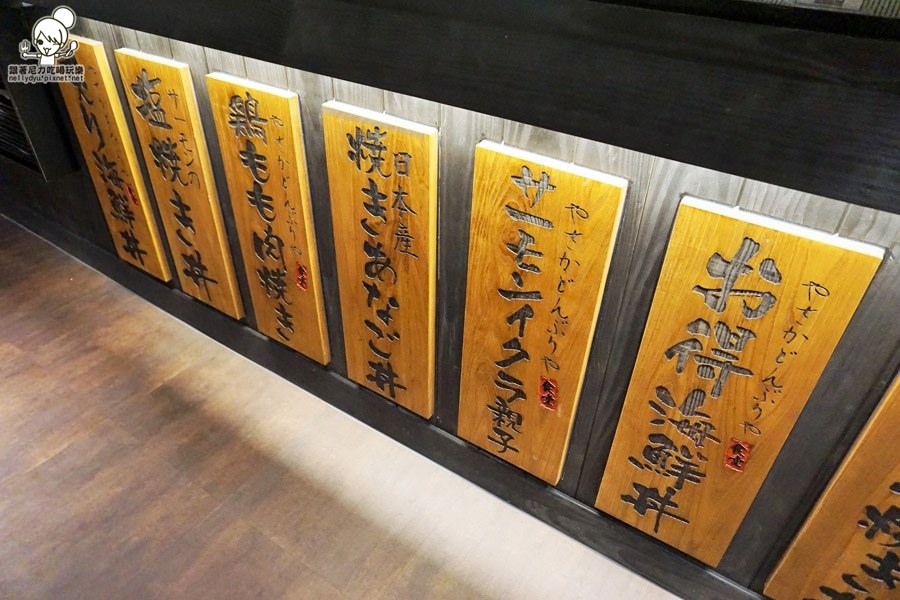 跟著尼力吃喝玩樂
nellydyu.pixnet.net
海鮮丼
サーモンの
塩焼き丼
やさかどんぶりや
鶏もも肉焼き
食堂
日本産
焼きあなご丼
やさかどんぶりや
サーモンイクラ親子
食堂
やさかどんぶりや
お得海鮮丼
食堂